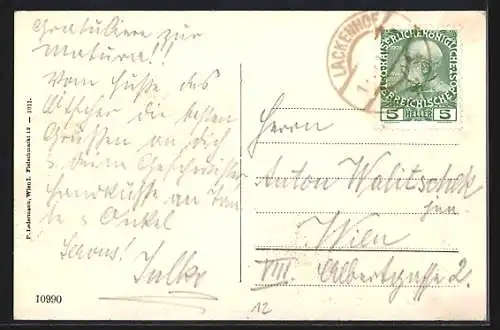 Gratuliere zur
Matura!!
Vom Fuße des
Ötscher die besten
Grüssen an dich
u. deine Geschwister
Handküsse an Tan-
te u Onkel
Servus!
P. Ledermann, Wien I. Fleischmarkt 12 — 1911.
10990
LACKENHOF
KAISERLICHE KÖNIGLICHE
ÖSTERREICHISCHE POST
5 HELLER 5
Herrn
Anton Walitschek
jun
Wien
VIII. Albertgasse 2.
12